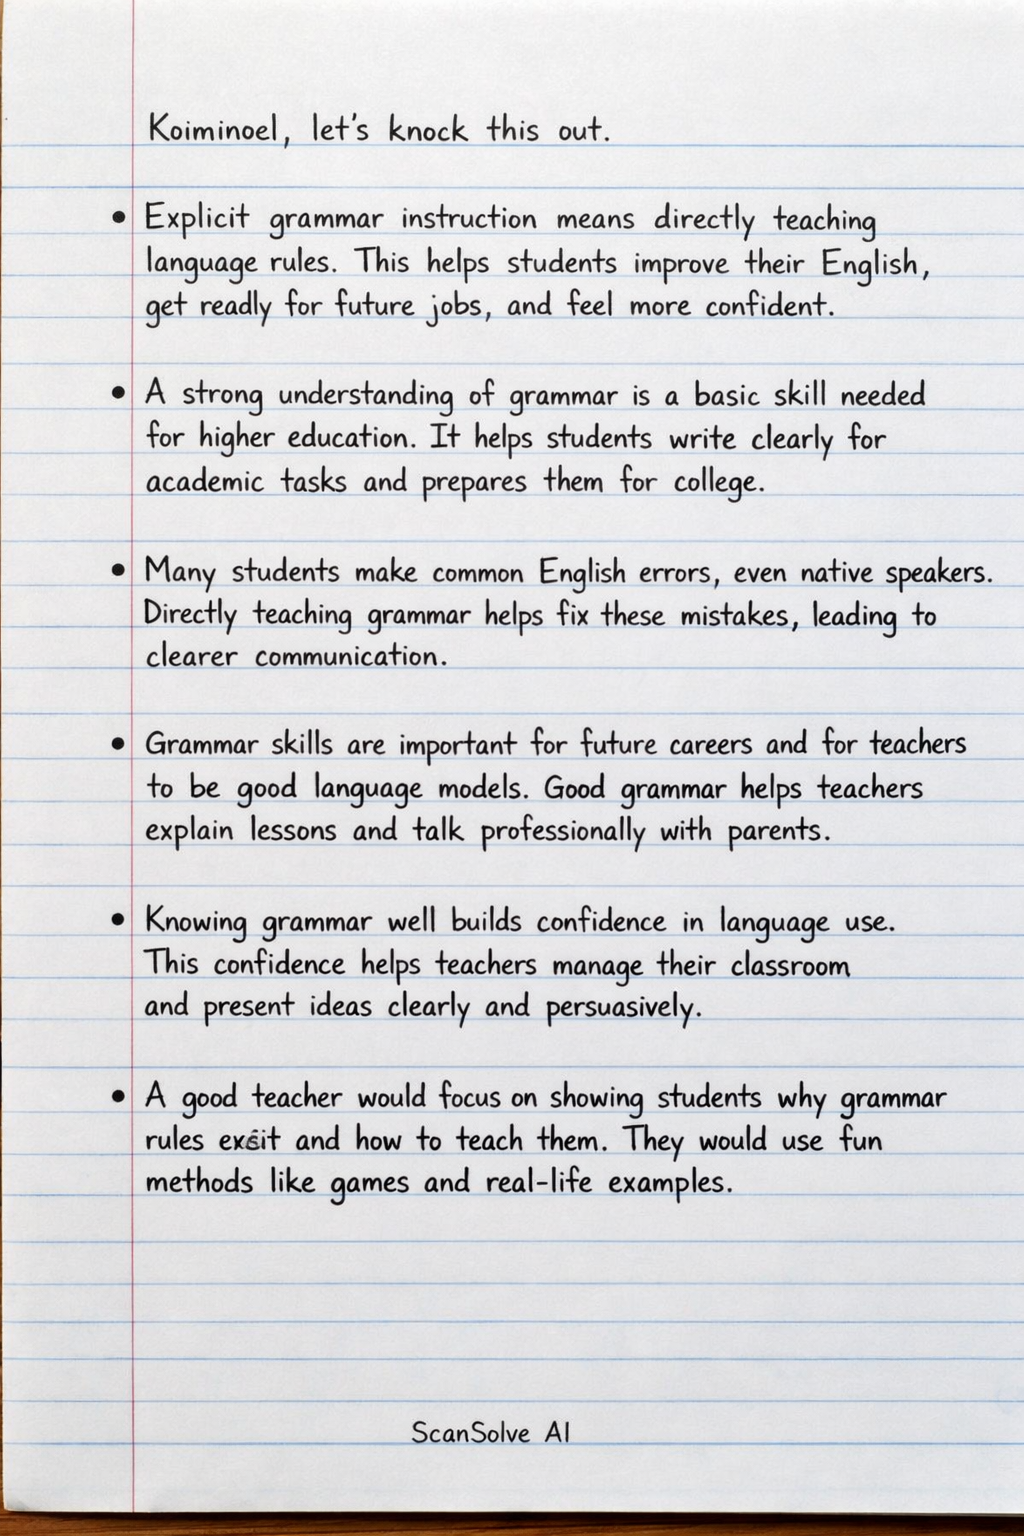 Koiminoel, let's knock this out.
• Explicit grammar instruction means directly teaching
language rules. This helps students improve their English,
get readly for future jobs, and feel more confident.
• A strong understanding of grammar is a basic skill needed
for higher education. It helps students write clearly for
academic tasks and prepares them for college.
• Many students make common English errors, even native speakers.
Directly teaching grammar helps fix these mistakes, leading to
clearer communication.
• Grammar skills are important for future careers and for teachers
to be good language models. Good grammar helps teachers
explain lessons and talk professionally with parents.
• Knowing grammar well builds confidence in language use.
This confidence helps teachers manage their classroom
and present ideas clearly and persuasively.
• A good teacher would focus on showing students why grammar
rules and how to teach them. They would use fun
methods like games and real-life examples.
ScanSolve AI